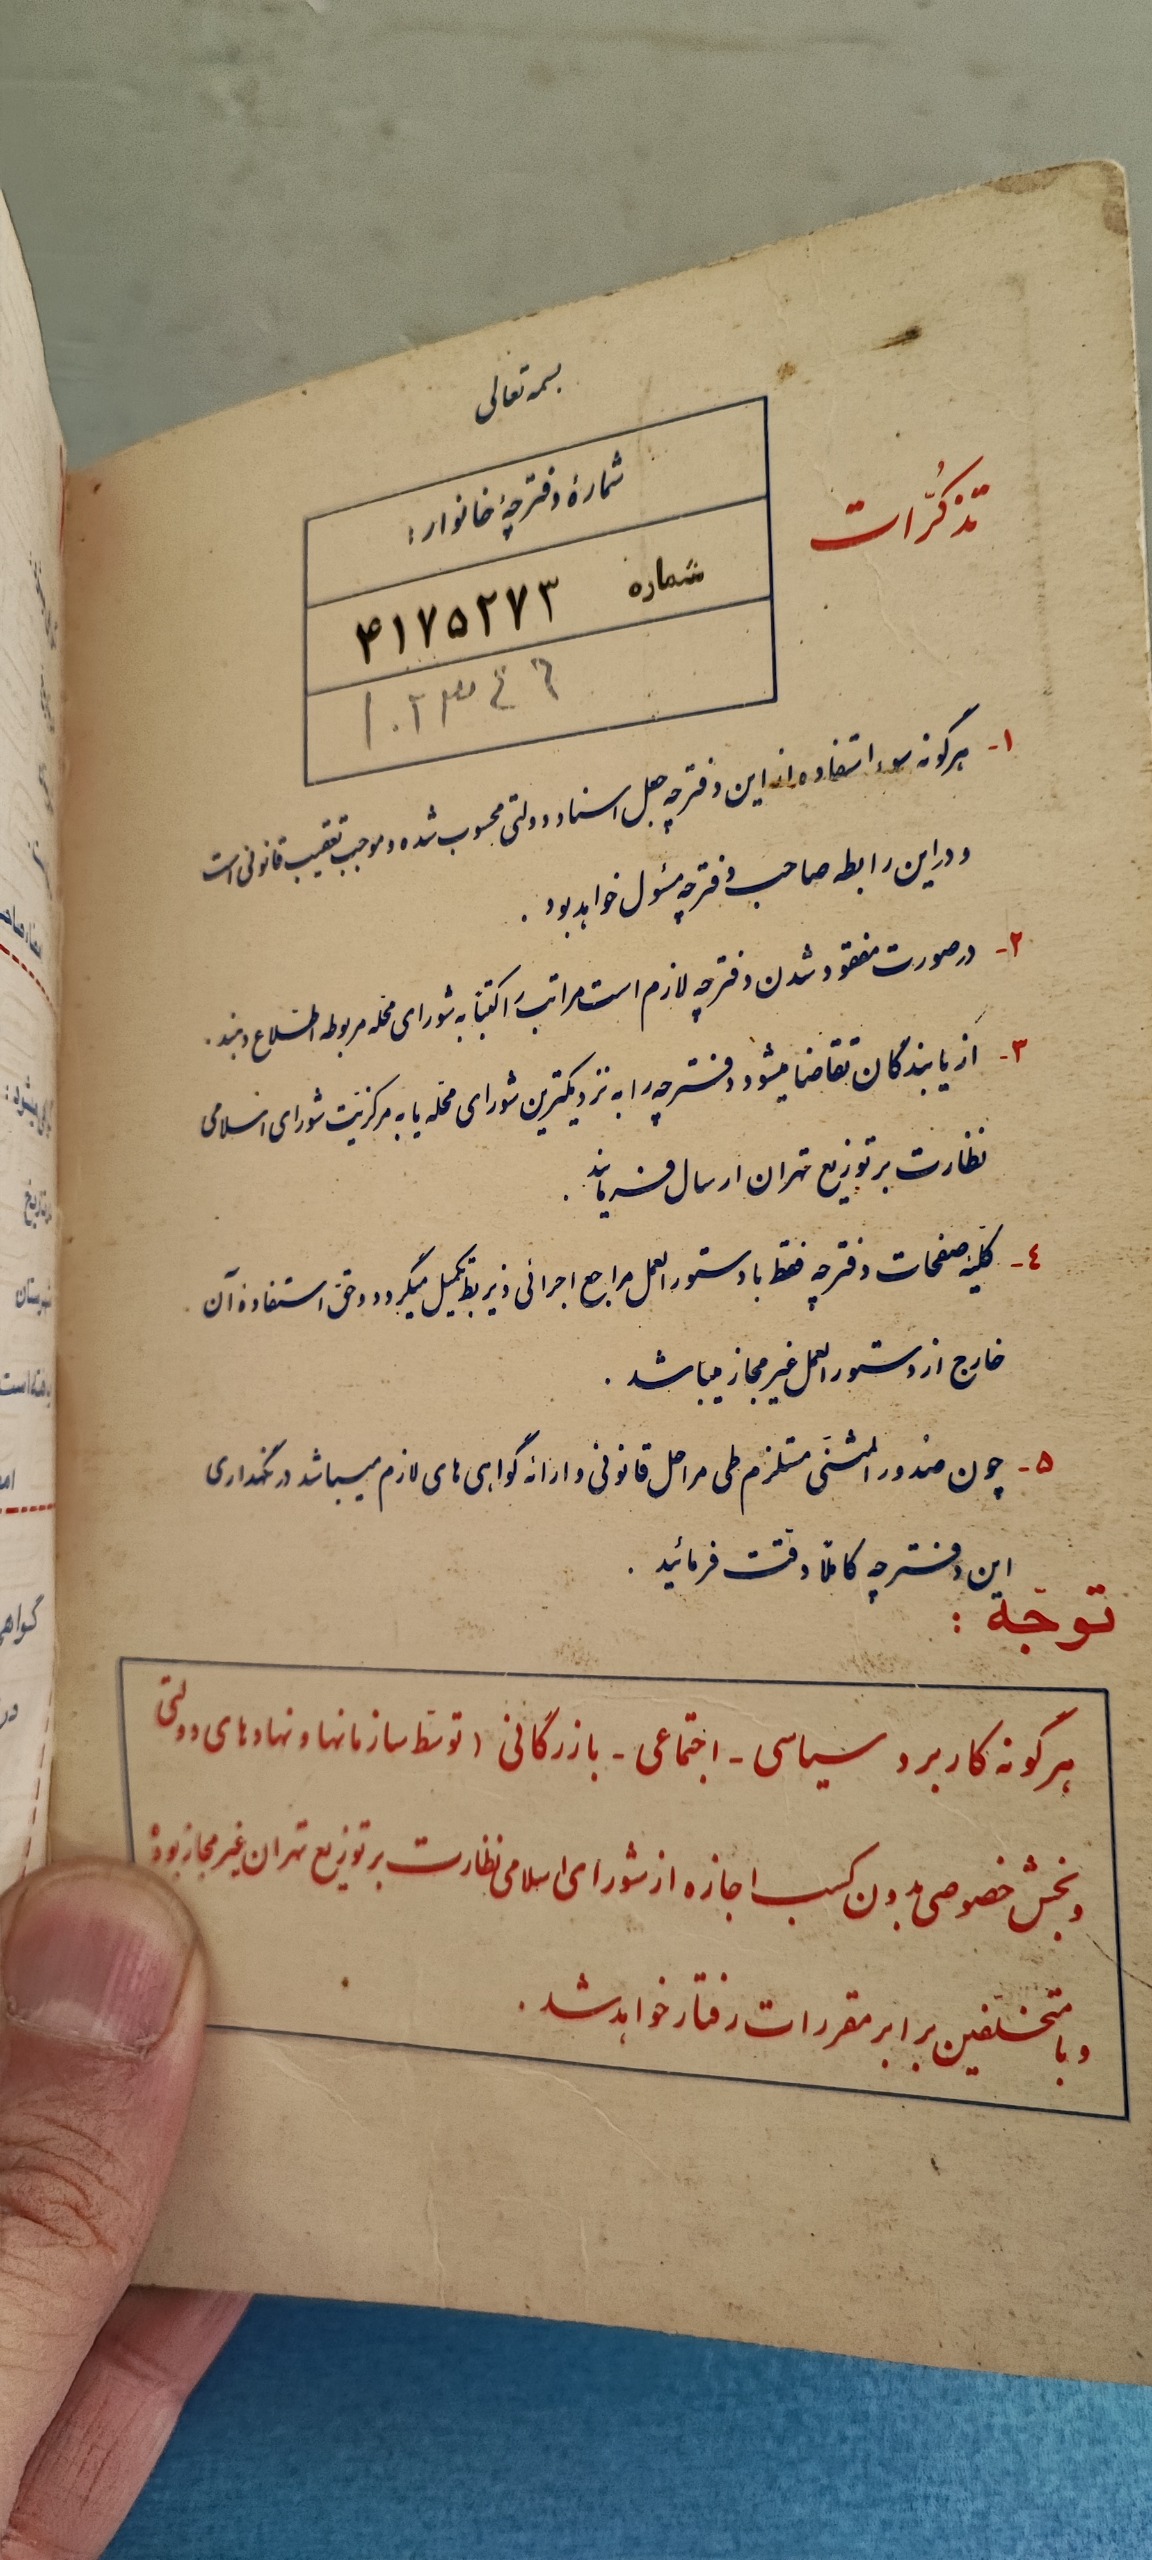 بسمه تعالی
تذکُّرات
شمارهٔ دفترچهٔ خانوار:
شماره ۴۱۷۵۲۷۳
۱۰۲۳۴۴۶
۱- هرگونه سوء استفاده از این دفترچه جعل اسناد دولتی محسوب شده و موجب تعقیب قانونی است
و در این رابطه صاحب دفترچه مسئول خواهد بود.
۲- در صورت مفقود شدن دفترچه لازم است مراتب را کتباً به شورای محله مربوطه اطلاع دهند.
۳- از یابندگان تقاضا میشود دفترچه را به نزدیکترین شورای محله یا به مرکزیت شورای اسلامی
نظارت بر توزیع تهران ارسال فرمایند.
٤- کلیّه صفحات دفترچه فقط با دستورالعمل مراجع اجرائی ذیربط تکمیل میگردد و حق استفاده آن
خارج از دستورالعمل غیرمجاز میباشد.
۵- چون صدور المثنی مستلزم طی مراحل قانونی و ارائه گواهی های لازم میباشد در نگهداری
این دفترچه کاملاً دقّت فرمائید.
توجّه:
هرگونه کاربرد سیاسی - اجتماعی - بازرگانی (توسّط سازمانها و نهادهای دولتی
و بخش خصوصی بدون کسب اجازه از شورای اسلامی نظارت بر توزیع تهران غیرمجاز بوده
و با متخلّفین برابر مقررات رفتار خواهد شد.
تاریخ
شهرستان
یافته است
گواهی